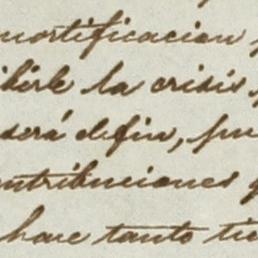 mortificacion
la crisis
será el fin, pue
ntribuciones
hace tanto tie